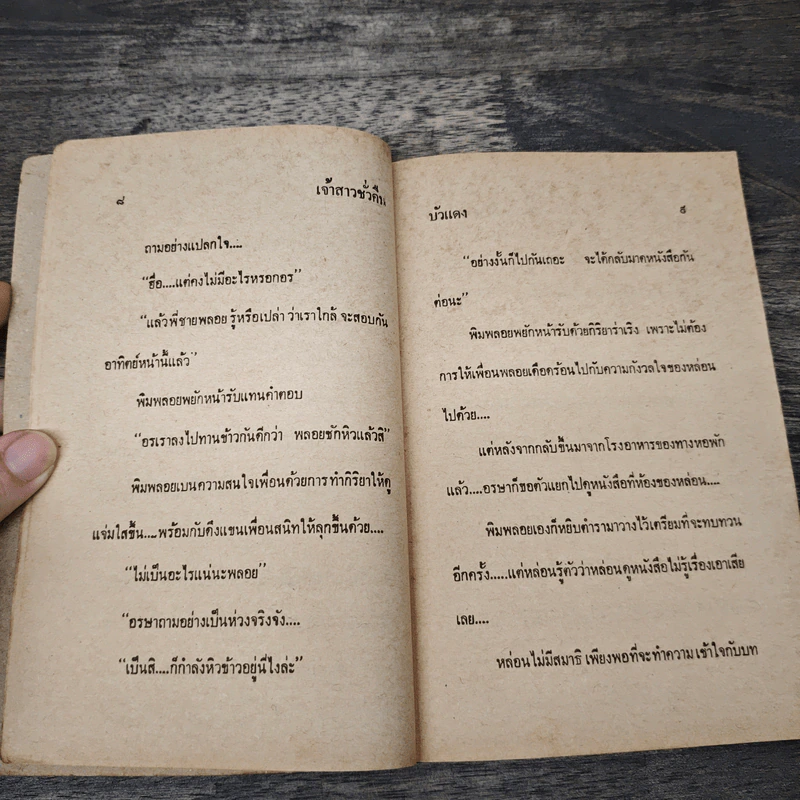 ๘
เจ้าสาวชั่วคืน
ถามอย่างแปลกใจ....
“ฮื่อ....แต่คงไม่มีอะไรหรอกอร”
“แล้วพี่ชายพลอย รู้หรือเปล่า ว่าเราใกล้ จะสอบกัน
อาทิตย์หน้านี้แล้ว”
พิมพลอยพยักหน้ารับแทนคำตอบ
“อรเราลงไปทานข้าวกันดีกว่า พลอยชักหิวแล้วสิ”
พิมพลอยเบนความสนใจเพื่อนด้วยการ ทำกิริยาให้ดู
แจ่มใสขึ้น....พร้อมกับดึงแขนเพื่อนสนิทให้ลุกขึ้นด้วย....
“ไม่เป็นอะไรแน่นะพลอย”
“อรษาถามอย่างเป็นห่วงจริงจัง....
“เป็นสิ....ก็กำลังหิวข้าวอยู่นี่ไงล่ะ”
บัวแดง
๙
“อย่างงั้นก็ไปกันเถอะ จะได้กลับมาดหนังสือกัน
ต่อนะ”
พิมพลอยพยักหน้ารับด้วยกิริยาร่าเริง เพราะไม่ต้อง
การให้เพื่อนพลอยเดือดร้อนไปกับความกังวลใจของหล่อน
ไปด้วย....
แต่หลังจากกลับขึ้นมาจากโรงอาหารของทางหอพัก
แล้ว....อรษาก็ขอตัวแยกไปดูหนังสือที่ห้องของหล่อน....
พิมพลอยเองก็หยิบตำรามาวางไว้เตรียมที่จะทบทวน
อีกครั้ง.....แต่หล่อนรู้ตัวว่าหล่อนดูหนังสือไม่รู้เรื่องเอาเสีย
เลย....
หล่อนไม่มีสมาธิ เพียงพอที่จะทำความ เข้าใจกับบท